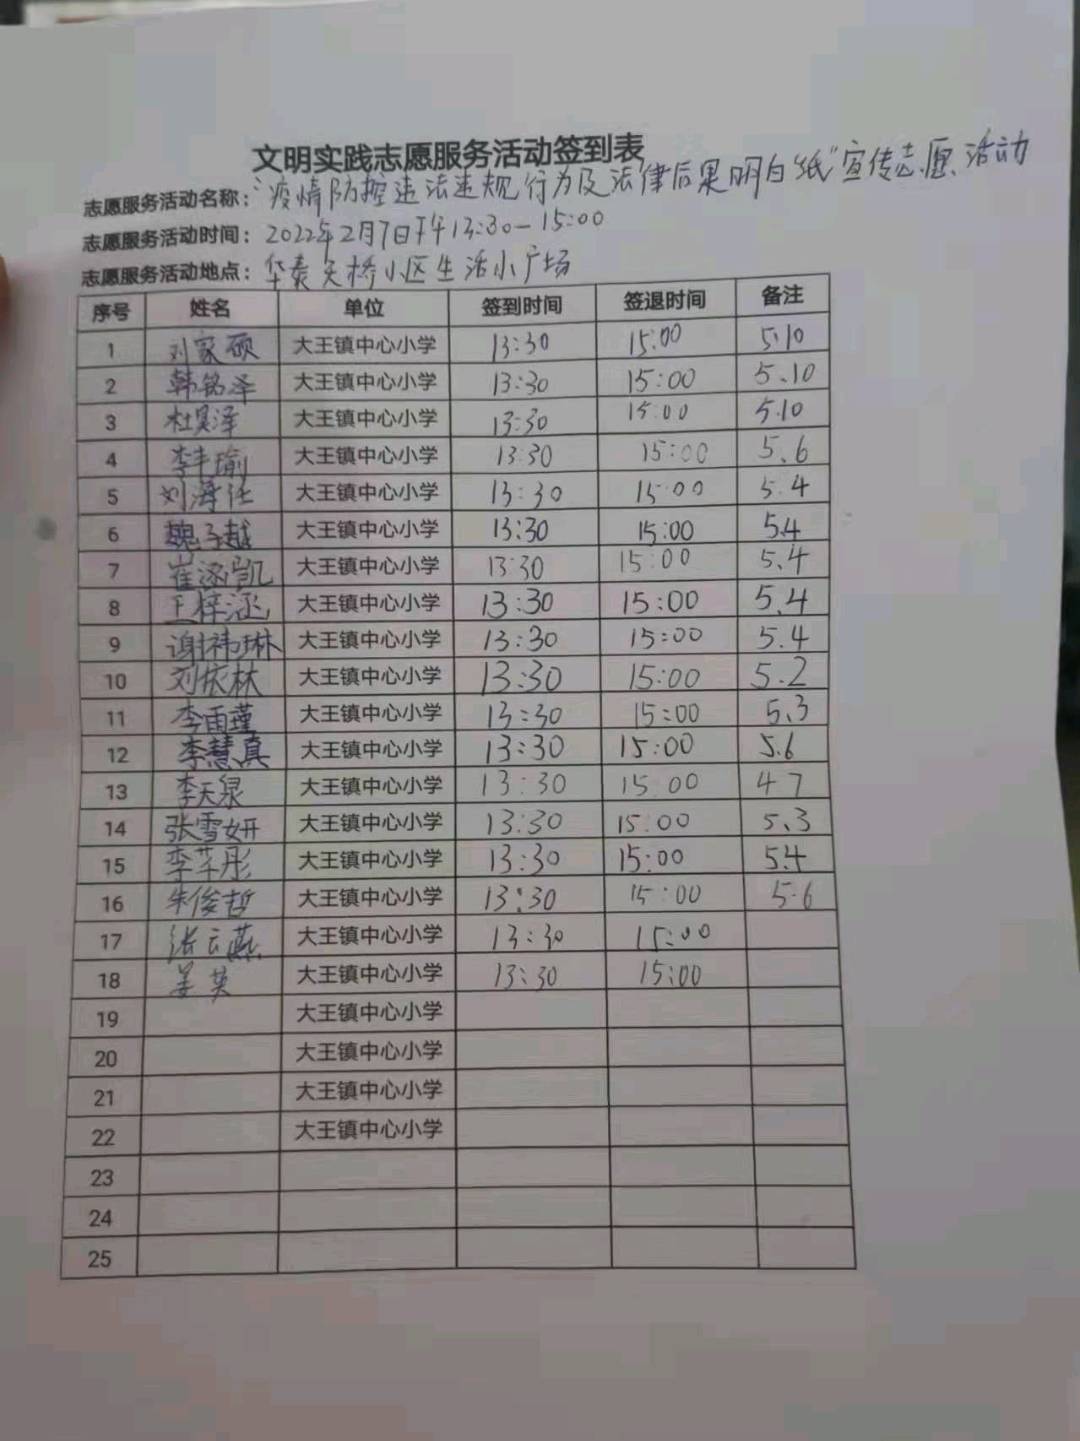 文明实践志愿服务活动签到表
志愿服务活动名称："疫情防控违法违规行为及法律后果明白纸"宣传志愿活动
志愿服务活动时间：2022年2月7日下午13:30—15:00
志愿服务活动地点：华泰天桥小区生活小广场
序号 姓名 单位 签到时间 签退时间 备注
1 刘家硕 大王镇中心小学 13:30 15:00 5.10
2 韩铭泽 大王镇中心小学 13:30 15:00 5.10
3 杜昊泽 大王镇中心小学 13:30 15:00 5.10
4 李丰瑜 大王镇中心小学 13:30 15:00 5.6
5 刘 大王镇中心小学 13:30 15:00 5.4
6 魏子越 大王镇中心小学 13:30 15:00 5.4
7 崔涵凯 大王镇中心小学 13:30 15:00 5.4
8 王梓涵 大王镇中心小学 13:30 15:00 5.4
9 谢祎琳 大王镇中心小学 13:30 15:00 5.4
10 刘依林 大王镇中心小学 13:30 15:00 5.2
11 李雨瑾 大王镇中心小学 13:30 15:00 5.3
12 李慧真 大王镇中心小学 13:30 15:00 5.6
13 李天泉 大王镇中心小学 13:30 15:00 4 7
14 张雪妍 大王镇中心小学 13:30 15:00 5.3
15 李芊彤 大王镇中心小学 13:30 15:00 5.4
16 朱俊哲 大王镇中心小学 13:30 15:00 5.6
17 张云燕 大王镇中心小学 13:30 15:00
18 姜英 大王镇中心小学 13:30 15:00
19 大王镇中心小学
20 大王镇中心小学
21 大王镇中心小学
22 大王镇中心小学
23
24
25